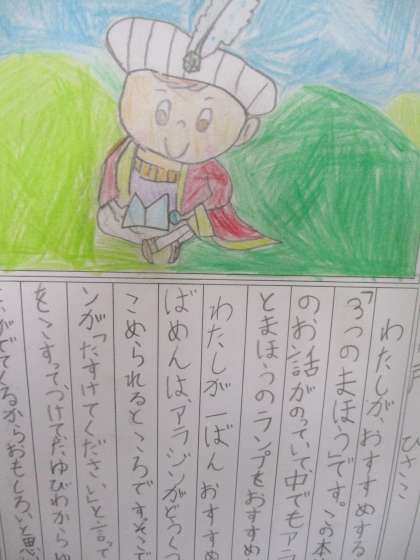 ひさこ
わたしが、おすすめする
「3つのまほう」です。この本
のお話がのっていて、中でもア
とまほうのランプをおすすめ
わたしが一ばんおすすめ
ばめんは、アラジンがどうくつ
こめられるところです。そこで
ンが「たすけてください。」と言って
をこすって、つけてたゆびわから
がでてくるからおもしろいと思